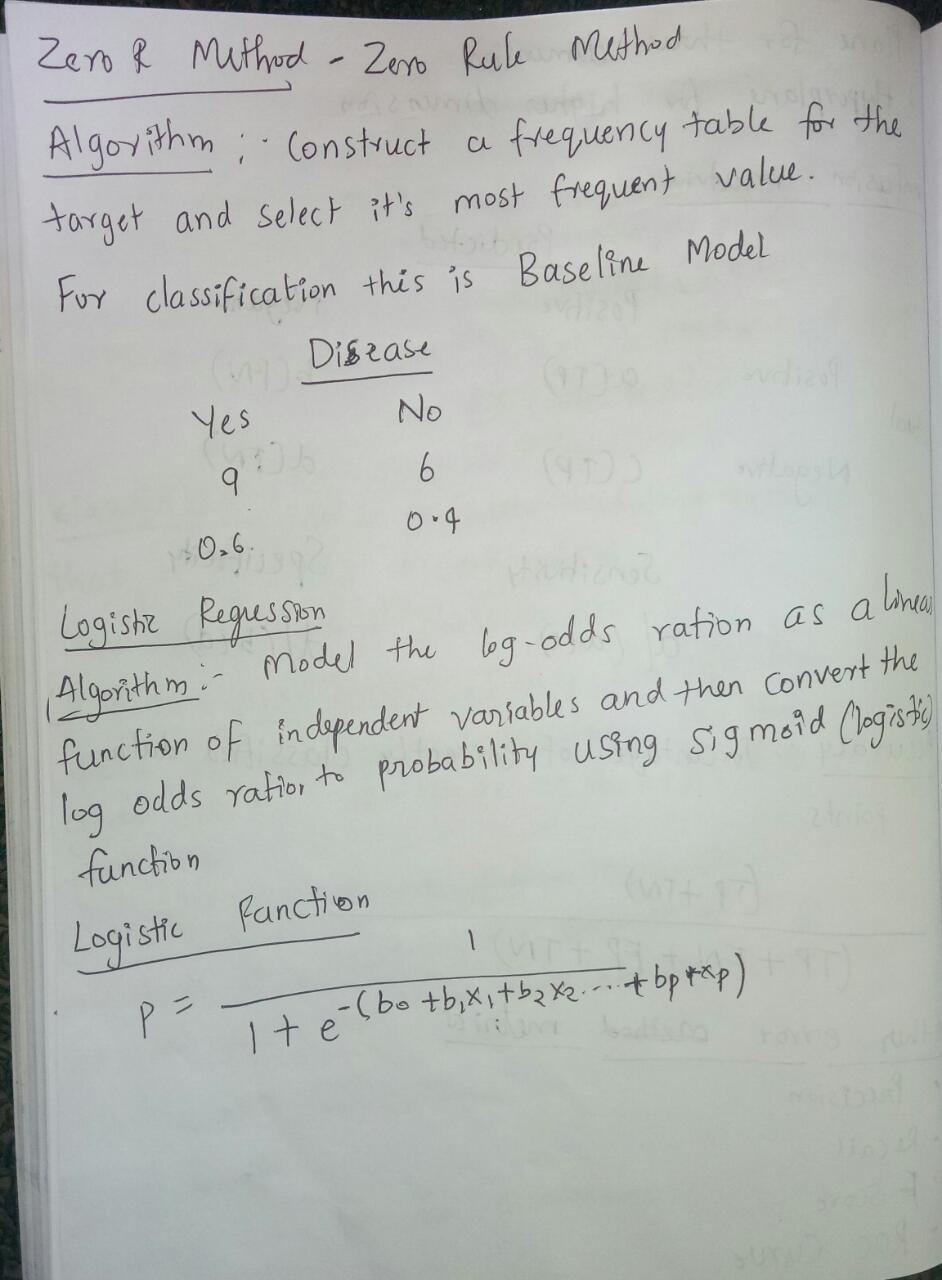 Zero R Method - Zero Rule Method
Algorithm :- Construct a frequency table for the
target and select it's most frequent value.
For classification this is Baseline Model
Disease
Yes No
9 6
0.6 0.4
Logistic Regression
Algorithm :- Model the log-odds ration as a linear
function of independent variables and then convert the
log odds ration to probability using sigmoid (logistic)
function
Logistic Function
P = 1 / 1 + e^-(b0 + b1x1 + b2x2 .... + bp*xp)